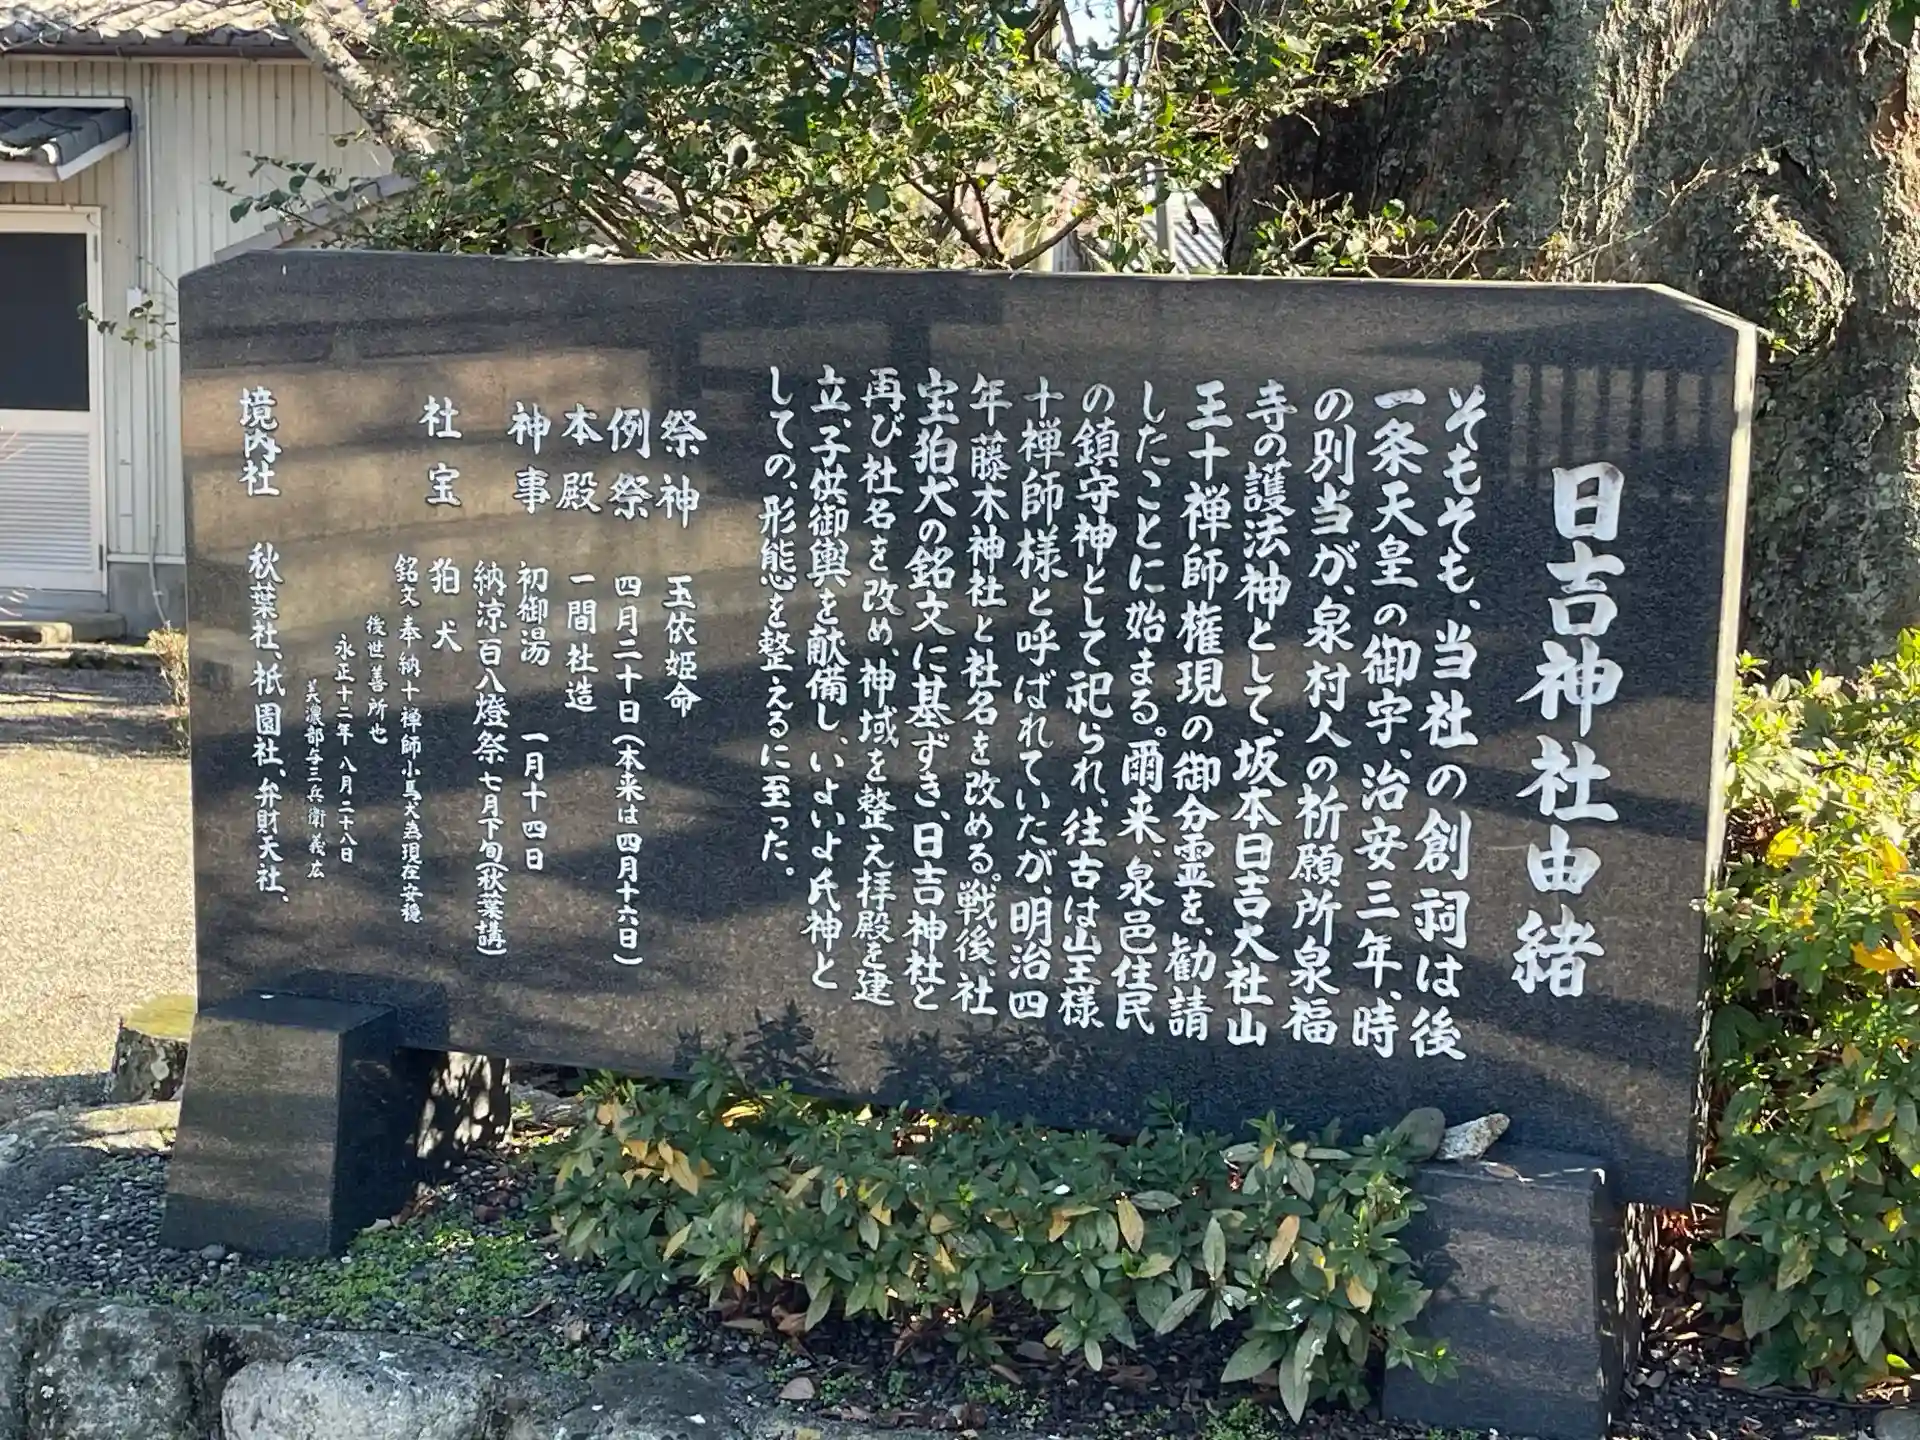 日吉神社由緒
そもそも、当社の創祠は後
一条天皇の御宇、治安三年、時
の別当が、泉村人の祈願所泉福
寺の護法神として、坂本日吉大社山
王十禅師権現の御分霊を、勧請
したことに始まる。爾来、泉邑住民
の鎮守神として祀られ、往古は山王様
十禅師様と呼ばれていたが、明治四
年藤木神社と社名を改める。戦後、社
宝狛犬の銘文に基ずき、日吉神社と
再び社名を改め、神域を整え拝殿を建
立、子供御輿を献備し、いよいよ氏神と
しての、形態を整えるに至った。
祭神 玉依姫命
例祭 四月二十日(本来は四月十六日)
本殿 一間社造
神事 初御湯 一月十四日
納涼百八燈祭 七月下旬(秋葉講)
社宝 狛犬
銘文 奉納十禅師小馬犬為現在安穏
後世善所也
永正十二年八月二十八日
美濃部与三兵衛義広
境内社 秋葉社、祇園社、弁財天社、